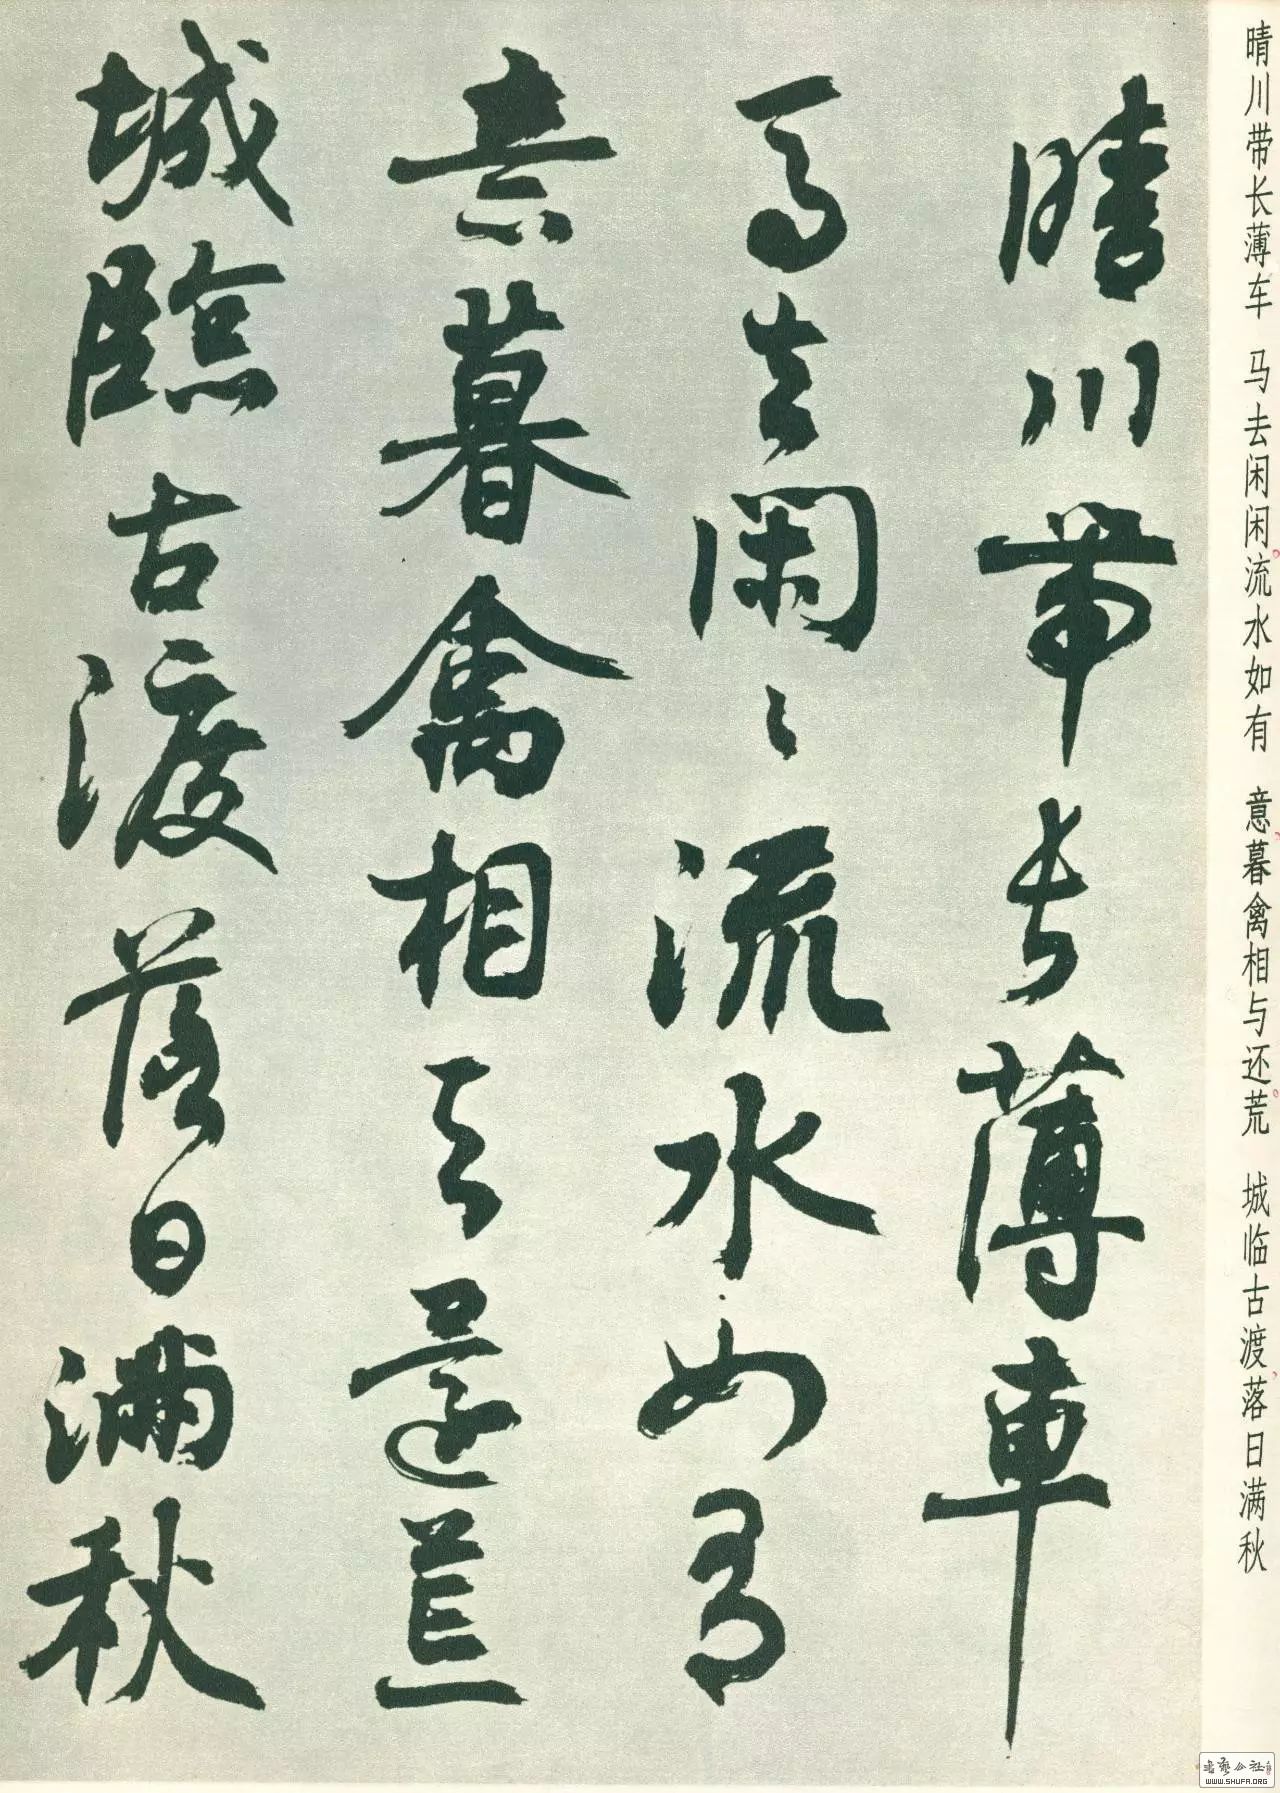 晴川带长薄车 马去闲闲流水如有 意暮禽相与还荒 城临古渡落日满秋
晴川帶長薄車
馬去閑〻流水如有
意暮禽相与還荒
城臨古渡落日滿秋
书艺公社
WWW.SHUFA.ORG